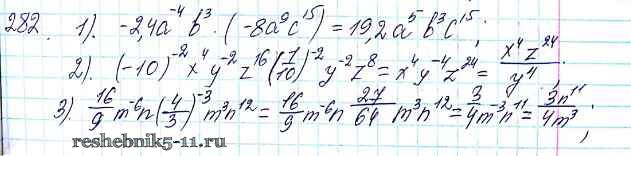 282. 1). -2,4a⁻⁴b³·(-8a⁹c¹⁵)=19,2a⁵b³c¹⁵;
2). (-10)⁻²x⁴y⁻²z¹⁶(1/10)⁻²y⁻²z⁸=x⁴y⁻⁴z²⁴=x⁴z²⁴/y⁴.
3). 16/9m⁻⁶n(4/3)⁻³m³n¹²=16/9m⁻⁶n 27/64 m³n¹²=3/4m⁻³n¹¹=3n¹¹/4m³;
reshebnik5-11.ru